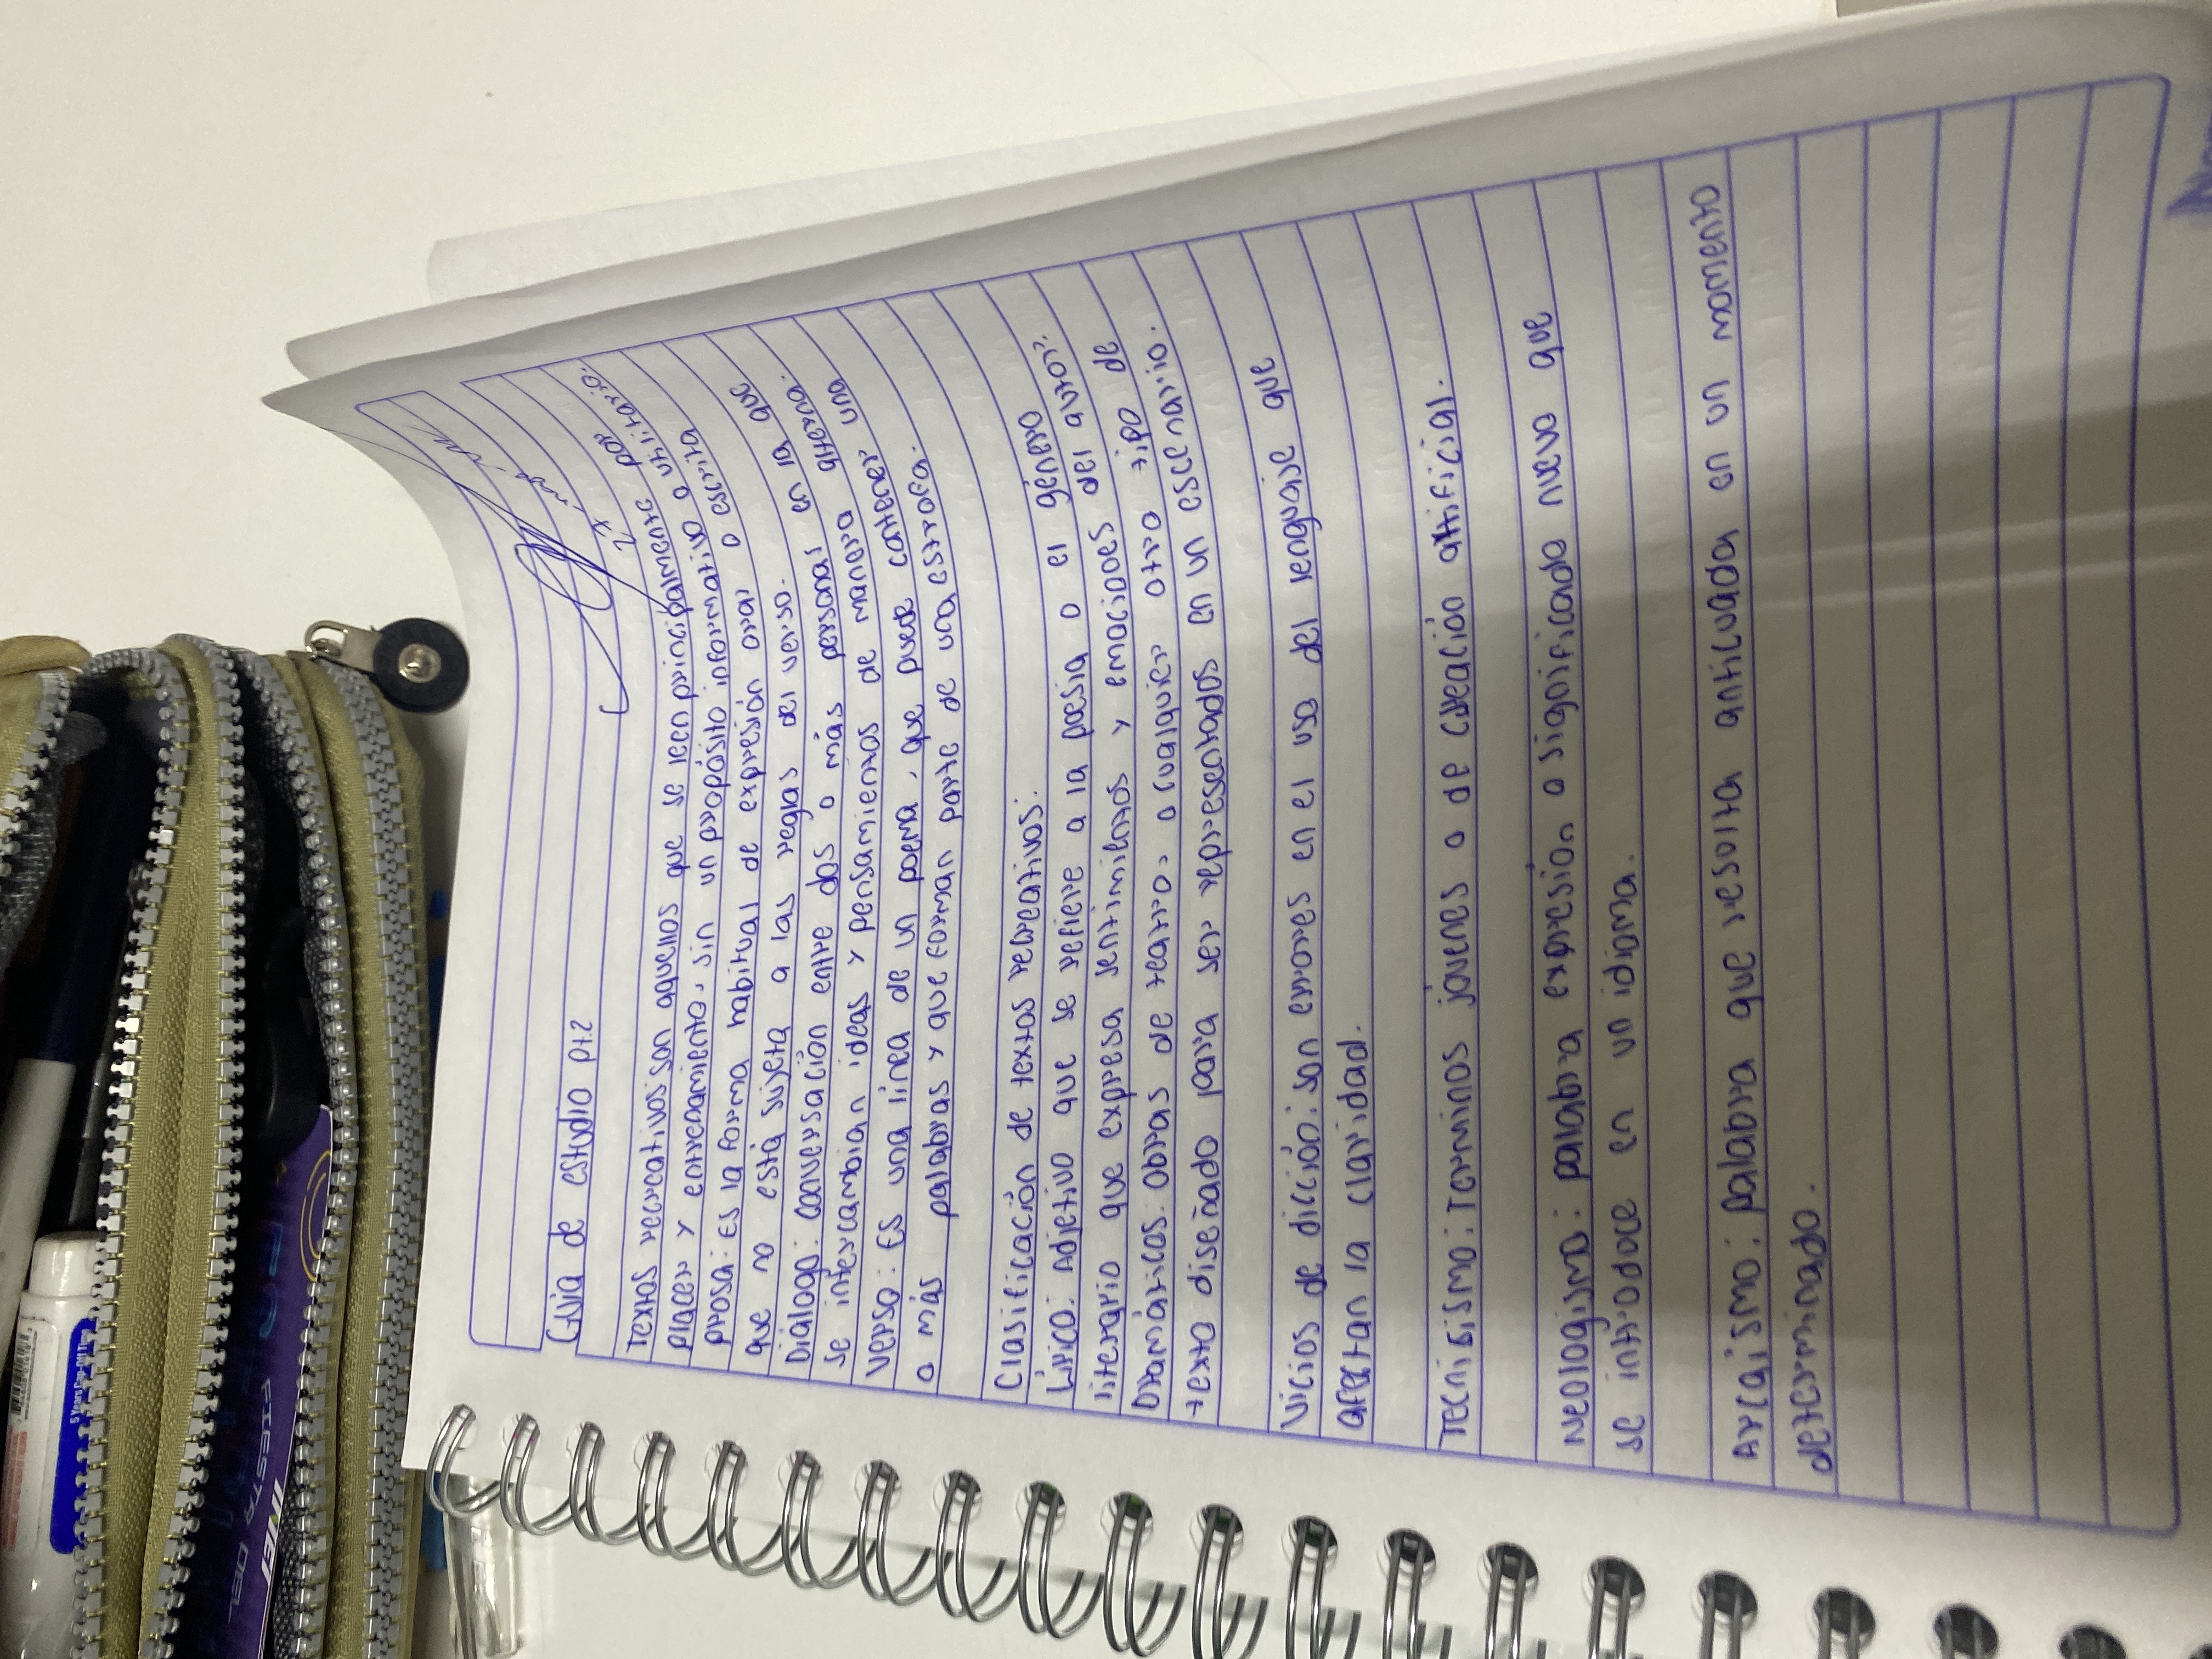 Guia de estudio pt.2
Textos recreativos: son aquellos que se leen principalmente por
placer y entrenamiento, sin un propósito informativo o utilitario.
prosa: Es la forma habitual de expresión oral o escrita
que no está sujeta a las reglas del verso.
Dialogo: conversación entre dos o más personas en la que
se intercambian ideas y pensamientos de manera alterna.
Verso: Es una linea de un poema, que puede contener una
o más palabras y que forman parte de una estrofa.
Clasificación de textos recreativos:
Lirico: Adjetivo que se refiere a la poesia o el género
literario que expresa sentimientos y emociones del autor.
Dramáticos: obras de teatro o cualquier otro tipo de
texto diseñado para ser representados en un escenario.
Vicios de dicción: son errores en el uso del lenguaje que
afectan la claridad.
Tecnisismo: Terminos jovenes o de creación artificial.
Neologismo: palabra expresion o significado nuevo que
se introduce en un idioma.
Arcaismo: palabra que resulta anticuada en un momento
determinado.
5 Years Cap-Off
FIESTA DEL